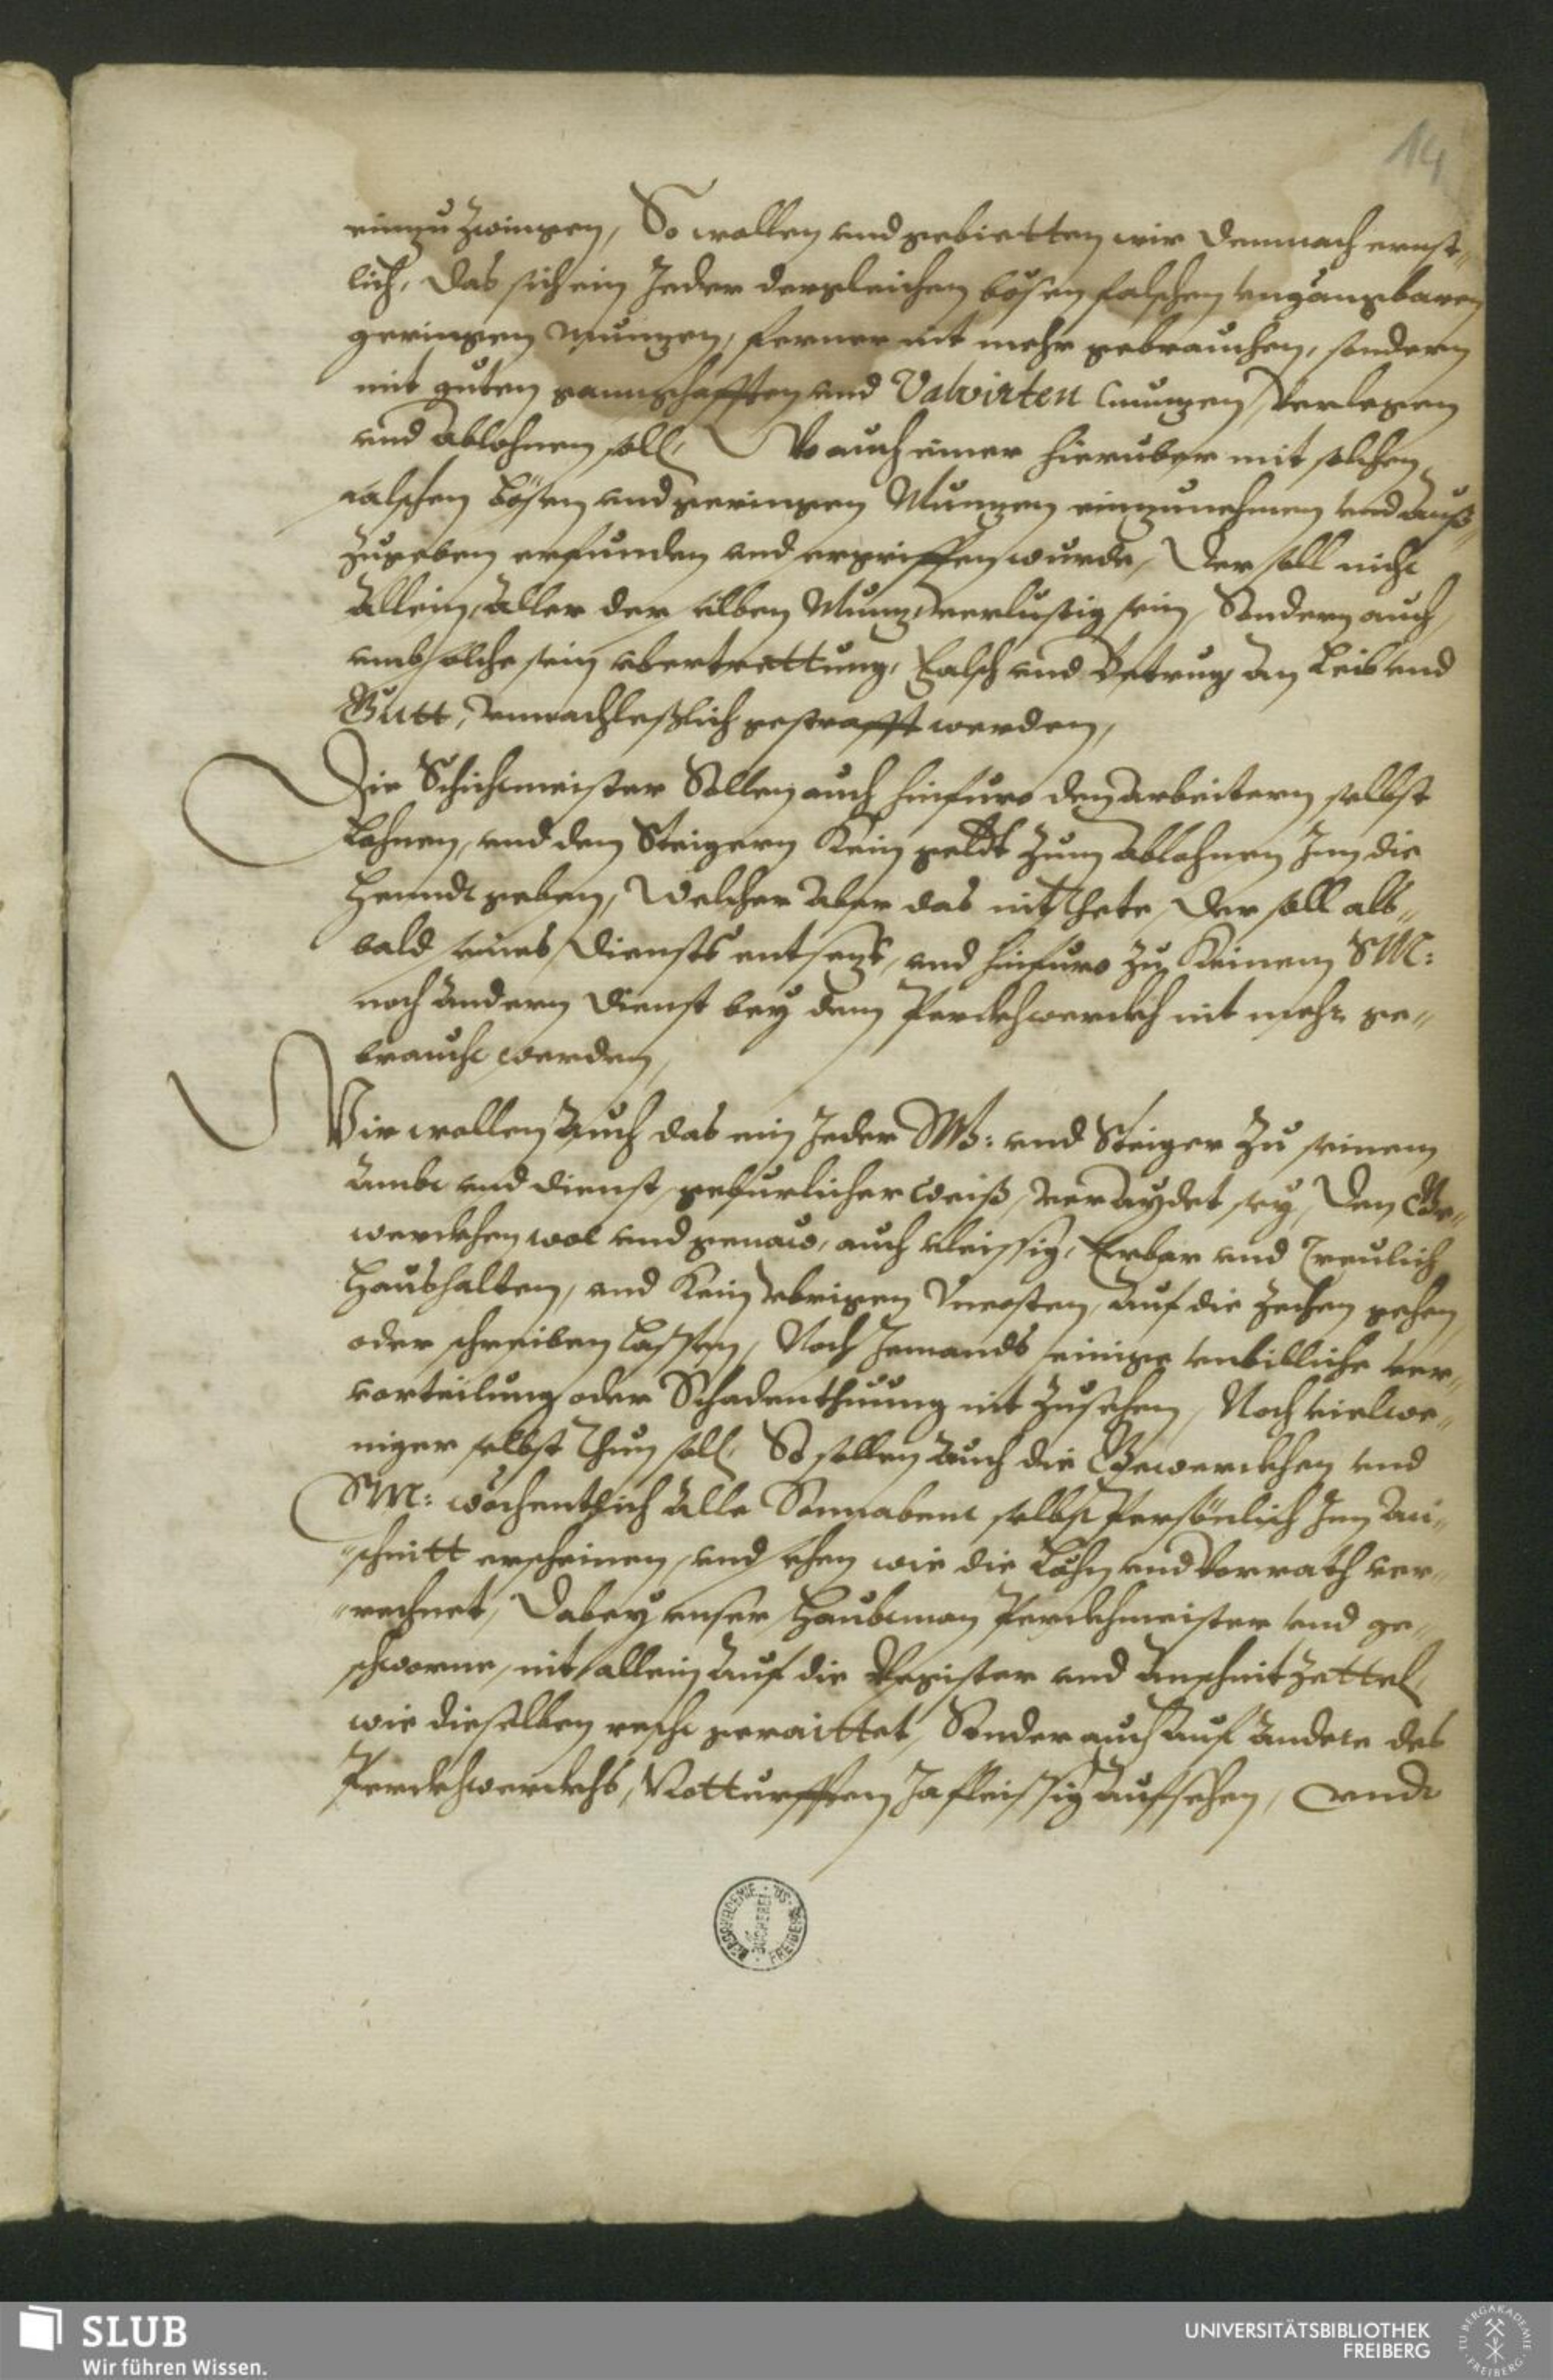 14
einzuzwingen, So wollen und gebietten wir demnach ernst„
lich, das sich ein Jeder dergleichen bösen falschen unganngbaren
geringen Munzen, ferner nit mehr gebrauchen, sondern
mit guten gannghafften und Valvirten munzen, verlegen
und ablohnen soll, Wo auch einer hieruber mit solchen
falschen bösen und geringen Munzen einzunehmen und auß„
zugeben erfunden und ergriffen wurde, Der soll nicht
allein, aller derselben Munz verlustig sein, Sondern auch,
umb solche sein ubertrettung, falsch und Betrug an Leib und
Gutt, unnachleßlich gestrafft werden,
Die Schichtmeister Sollen auch hinfuro den arbeitern selbst
Lohnen, und den Steigern Kein geldt zum ablohnen Inn die
Henndt geben, Welcher aber das nit thete, der soll als„
bald seines diensts entsezt, und hinfuro zu Keinem SM:
noch andern dienst bey dem Perckhwerckh nit mehr ge„
braucht werden,
Wir wollen auch das ein Jeder SM: und Steiger zu seinem
ambt und dienst, geburlicher weiß, veraydet sey, Den Ge„
werckhen wol und genaw, auch vleissig, Erbar und Treulich
Haushalten, und Kein ubrigen Uncosten, auf die Zechen gehen
oder schreiben lassen, Noch Jemands einige unbilliche ver„
vorteilung oder Schadenthuung nit zusehen, Noch vielwe„
niger selbst Thun soll, So sollen auch die Gewerckhen und
SM: wöchentlich alle Sonnabent selbst Persönlich Im An„
„schnitt erscheinen, und sehen wie die Löhn und Vorrath ver„
„rechnet, Dabey unser Haubtman Perckhmeister und ge„
schworne, nit allein auf die Register und anschnitzettel,
wie dieselben recht geraittet, Sonder auch auf andere des
Perckhwerckhs, Notturfften Ja fleissig aufsehen, unndt
BERGAKADEMIE
BÜCHEREI
FREIBERG
SLUB
Wir führen Wissen.
UNIVERSITÄTSBIBLIOTHEK
FREIBERG
TU BERGAKADEMIE
FREIBERG